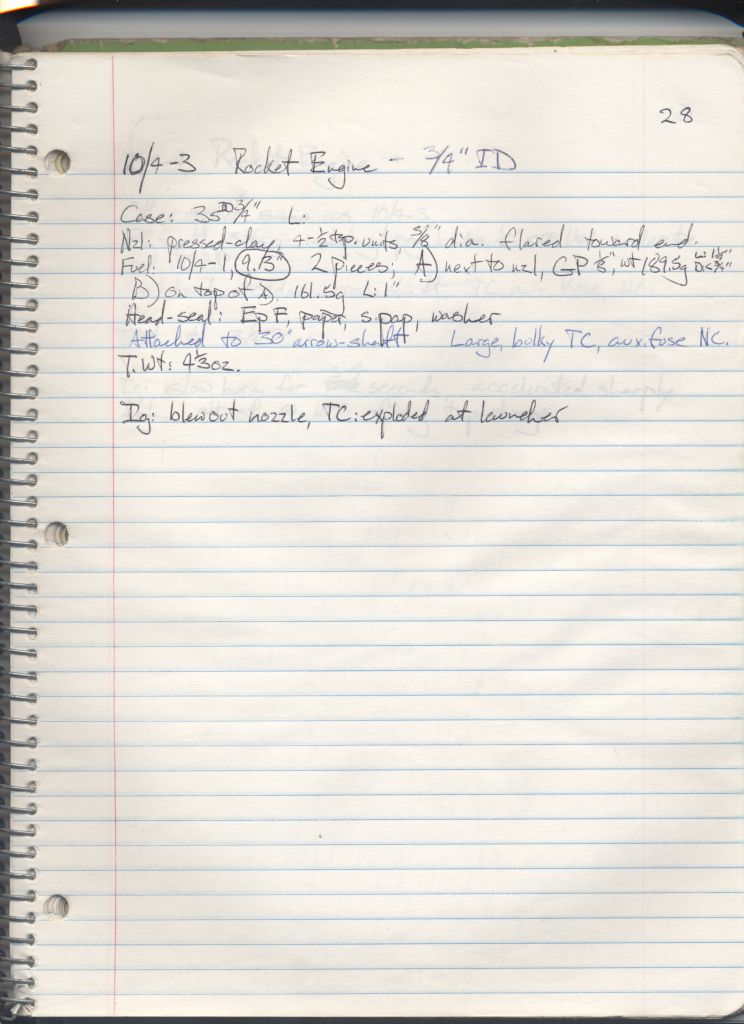 28
10/4-3 Rocket Engine - 3/4" ID
Case: 35 ID 3/4" L:
Nzl: pressed-clay, 4-½ tsp. units, 3/8" dia. flared toward end.
Fuel: 10/4-1, 2 pieces; A) next to nzl, GP ⅛", wt 189.5g L: 1½"
B) on top of A, 161.5g L: 1"
Head-seal: Ep F, paper, s.pap, washer
Attached to 30" arrow-shaft Large, bulky TC, aux. fuse NC.
T. Wt: 4⅓oz.
Ig: blewout nozzle, TC: exploded at launcher